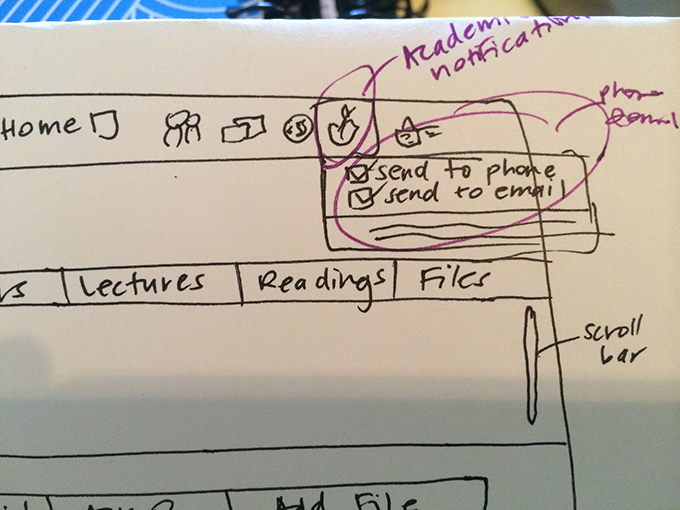 Academic
notification
phone
email
Home
send to phone
send to email
Lectures
Readings
Files
scroll
bar
Add File